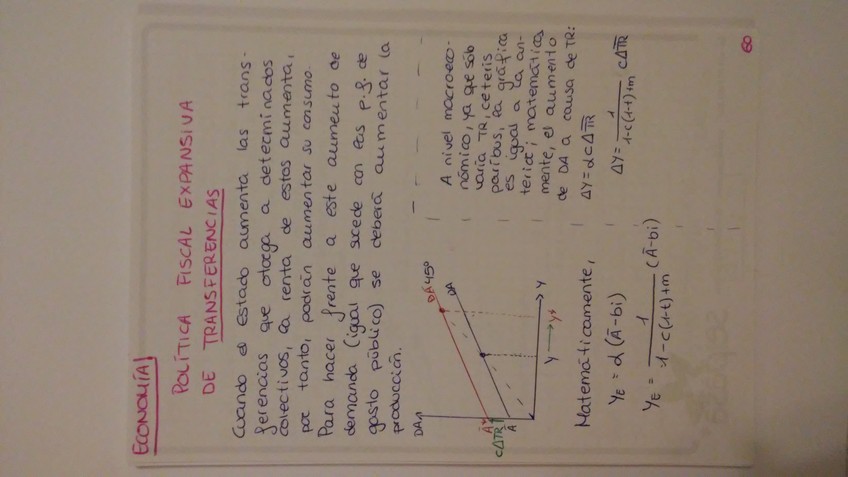 ECONOMÍA!
POLÍTICA FISCAL EXPANSIVA
DE TRANSFERENCIAS
Cuando el estado aumenta las trans-
ferencias que otorga a determinados
colectivos, la renta de estos aumenta,
por tanto, podrán aumentar su consumo.
Para hacer frente a este aumento de
demanda (igual que sucede con las p.f. de
gasto público) se deberá aumentar la
producción.
DA
DA'
45º
DA
A'
cΔTR
A
Y → Y*
Y
A nivel macroeco-
nómico, ya que sólo
varía TR, ceteris
paribus, la gráfica
es igual a la an-
terior; matemática
mente, el aumento
de DA a causa de TR:
ΔY = αcΔT̅R̅
ΔY = 1/(1-c(1-t)+m) cΔT̅R̅
Matemáticamente,
YE = α(Ā-bi)
YE = 1/(1-c(1-t)+m) (Ā-bi)
60